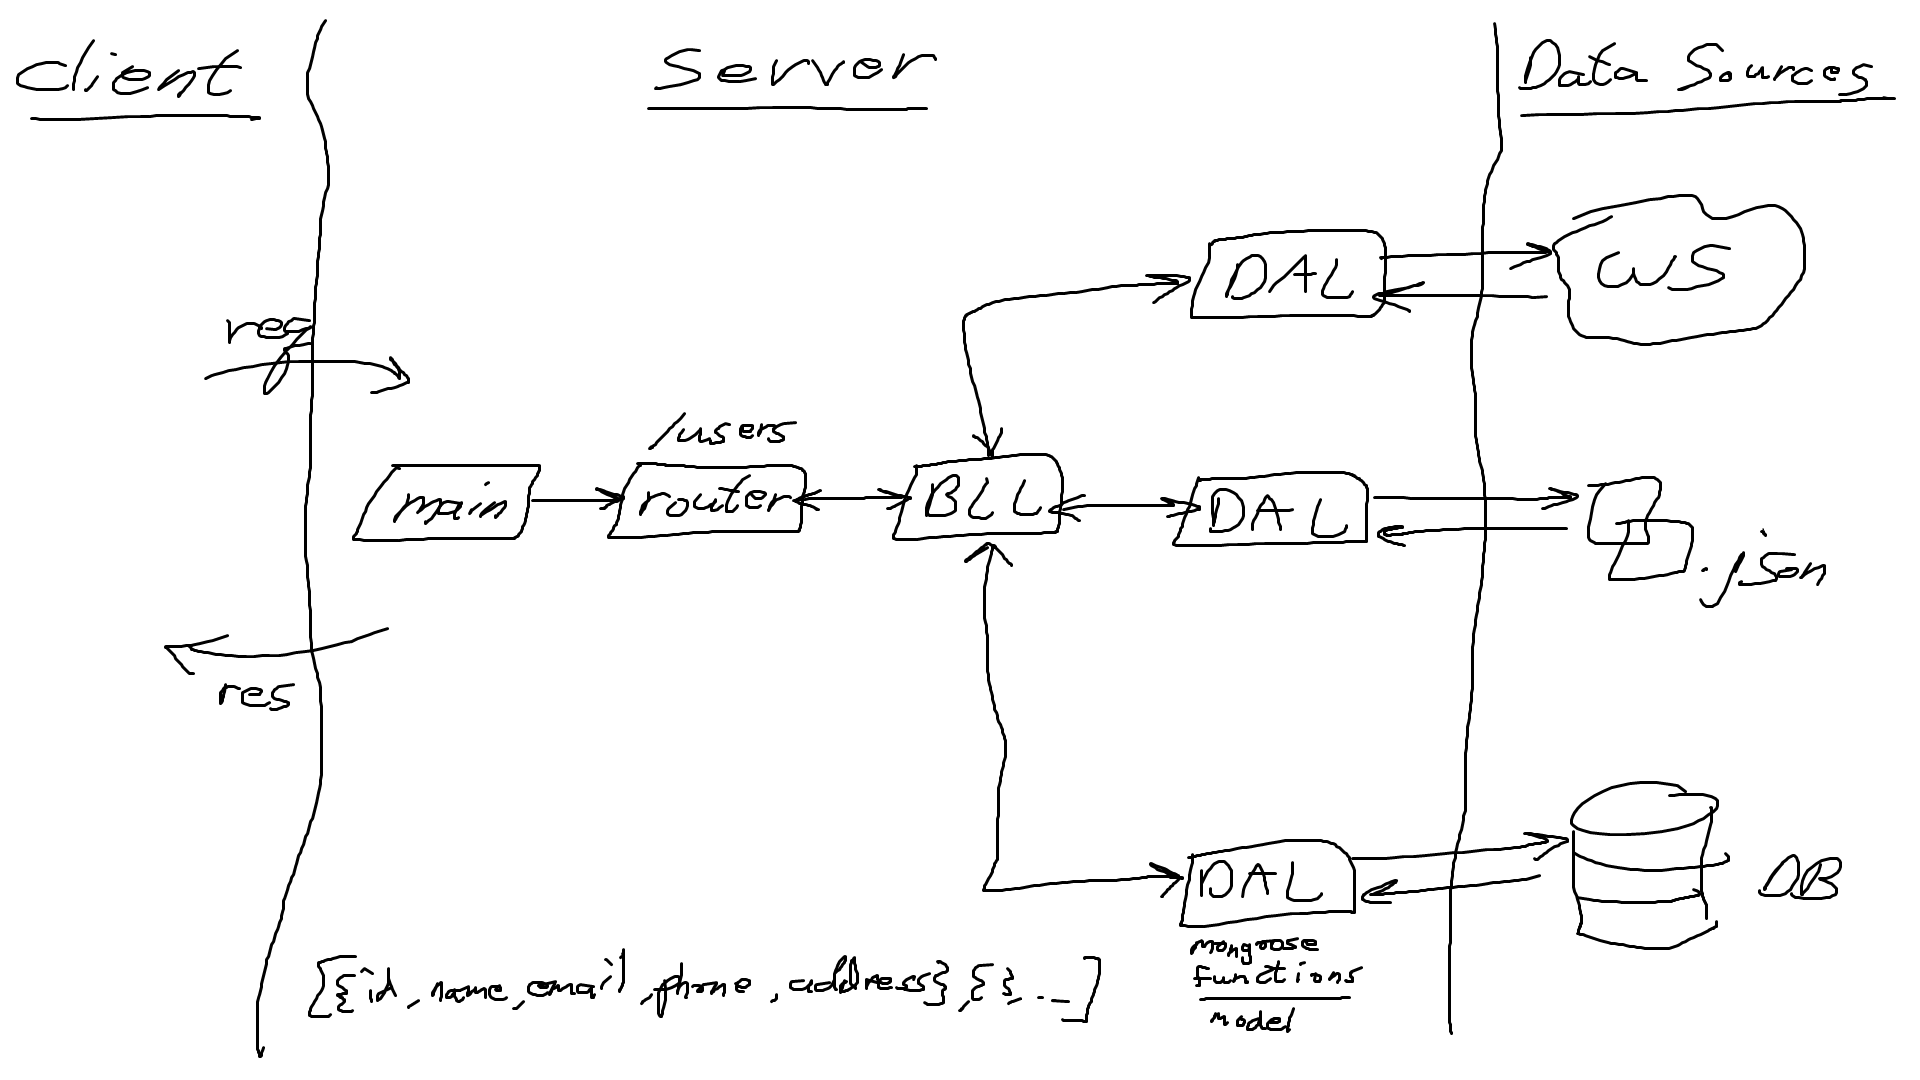 Client
Server
Data Sources
req
res
main
/users
router
BLL
DAL
WS
DAL
.json
DAL
mongoose
functions
model
DB
[{id, name, email, phone, address}, { }, ...]